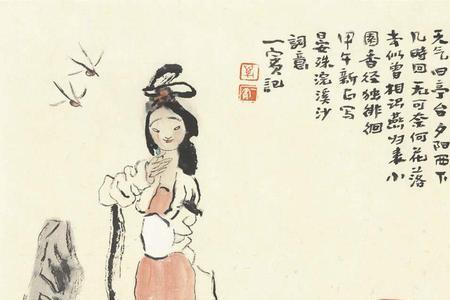 天气旧亭台夕阳西下
几時回无可奈何花落
去似曾相识燕归来小
園香径独徘徊
甲午新正写
晏殊浣溪沙
詞意
一賓记